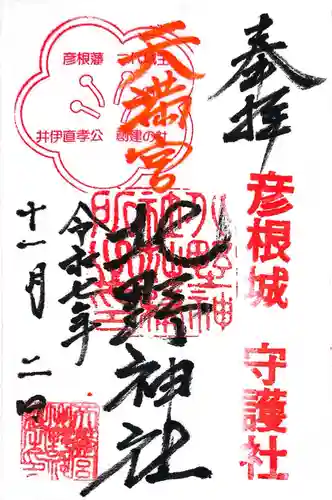 奉拝
彦根城 守護社
天満宮
北野神社
彦根藩 二代藩主
井伊直孝公 創建の社
令和七年
十一月 二日